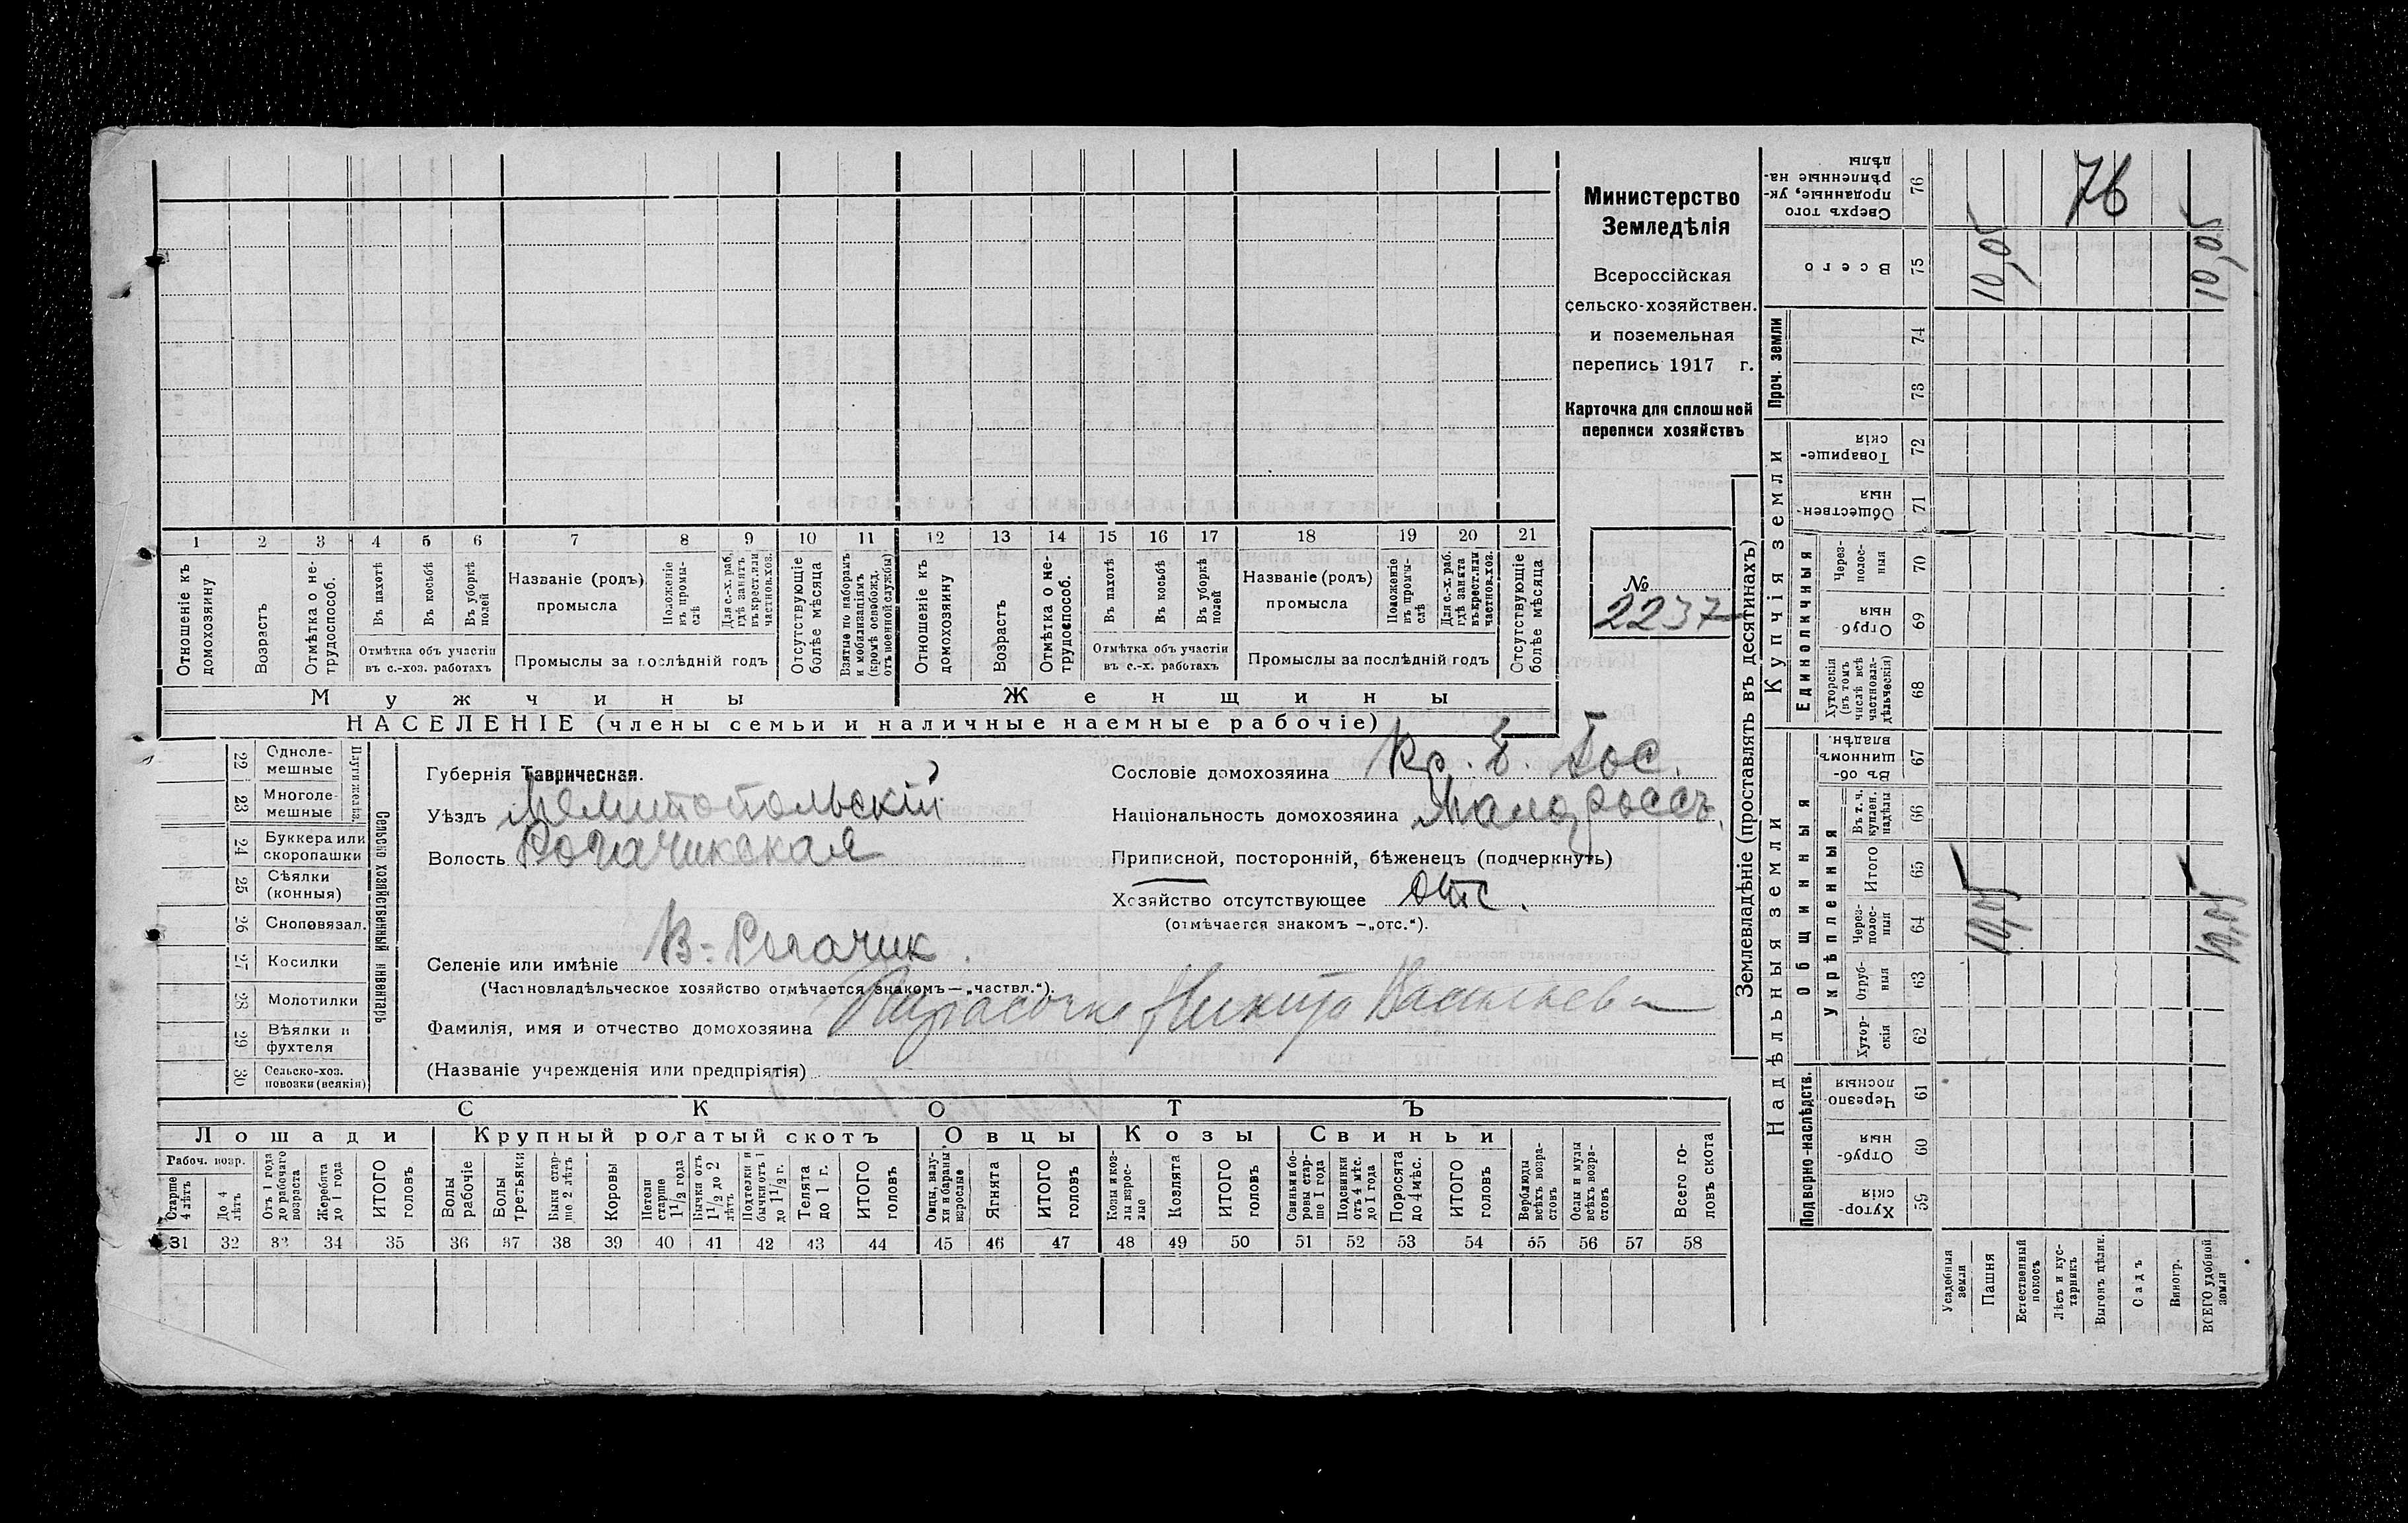 Министерство
Земледѣлія
Всероссійская
сельско-хозяйствен.
и поземельная
перепись 1917 г.
Карточка для сплошной
переписи хозяйствъ
№
2237
1 2 3 4 5 6 7 8 9 10 11 12 13 14 15 16 17 18 19 20 21
Отношеніе къ домохозяину
Возрастъ
Отмѣтка о нетрудоспособ.
Въ пахотѣ
Въ косьбѣ
Въ уборкѣ полей
Отмѣтка объ участіи
въ с.-хоз. работахъ
Названіе (родъ)
промысла
Положеніе въ промыслѣ
Для с.-х. раб. гдѣ занятъ въ крест. или частнов. хоз.
Промыслы за послѣдній годъ
Отсутствующіе болѣе мѣсяца
Взятые по наборамъ и мобилизаціямъ (кромѣ освобожд. отъ военной службы)
Отношеніе къ домохозяину
Возрастъ
Отмѣтка о нетрудоспособ.
Въ пахотѣ
Въ косьбѣ
Въ уборкѣ полей
Отмѣтка объ участіи
въ с.-х. работахъ
Названіе (родъ)
промысла
Положеніе въ промыслѣ
Для с.-х. раб. гдѣ занята въ крест. или частнов. хоз.
Промыслы за послѣдній годъ
Отсутствующіе болѣе мѣсяца
Мужчины
Женщины
НАСЕЛЕНІЕ (члены семьи и наличные наемные рабочіе)
22 Одноле-мешные
23 Многоле-мешные
24 Буккера или скоропашки
25 Сѣялки (конныя)
26 Сноповязал.
27 Косилки
28 Молотилки
29 Вѣялки и фухтеля
30 Сельско-хоз. повозки (всякія)
Сельско хозяйственный инвентарь
Губернія Таврическая.
Уѣздъ Мелитопольскій
Волость Рогачикская
Селеніе или имѣніе В-Рогачик.
(Частновладѣльческое хозяйство отмѣчается знакомъ—„частвл.“).
Сословіе домохозяина Кр. б. Гос.
Національность домохозяина Малороссъ.
Приписной, посторонній, бѣженецъ (подчеркнуть)
Хозяйство отсутствующее отс.
(отмѣчается знакомъ —„отс.“).
Фамилія, имя и отчество домохозяина Никита Васильев
(Названіе учрежденія или предпріятія)
СКОТЪ
Лошади
Крупный рогатый скотъ
Овцы
Козы
Свиньи
Рабоч. возр.
Старше 4 лѣтъ
До 4 лѣтъ
Отъ 1 года до рабочаго возраста
Жеребята до 1 года
ИТОГО головъ
Волы рабочіе
Волы третьяки
Быки старше 2 лѣтъ
Коровы
Нетели старше 1 1/2 года
Бычки отъ 1 1/2 до 2 лѣтъ
Подтелки и бычки отъ 1 до 1 1/2 г.
Телята до 1 г.
ИТОГО головъ
Овцы, валухи и бараны взрослые
Ягнята
ИТОГО головъ
Козы и козлы взрослые
Козлята
ИТОГО головъ
Свиньи и боровы старше 1 года
Подсвинки отъ 4 мѣс. до 1 года
Поросята до 4 мѣс.
ИТОГО головъ
Верблюды всѣхъ возрастовъ
Ослы и мулы всѣхъ возрастовъ
Всего головъ скота
31 32 33 34 35 36 37 38 39 40 41 42 43 44 45 46 47 48 49 50 51 52 53 54 55 56 57 58
Землевладѣніе (проставлять въ десятинахъ)
Купчія земли
Надѣльныя земли
Проч. земли
Единоличныя
Общинныя
Укрѣпленныя
Подворно-наслѣдств.
76 Сверхъ того проданные, укрѣпленные надѣлы
75 Всего
74
73
72 Товарищескія
71 Общественныя
70 Через-полос-ныя
69 Отрубныя
68 Хуторскія (въ томъ числѣ всѣ частновладѣльческія)
67 Въ общинномъ владѣн.
66 Въ т. ч. куплен. надѣлы
65 Итого
64 Через-полос-ныя
63 Отруб-ныя
62 Хутор-скія
61 Черезполосныя
60 Отрубныя
59 Хуторскія
Усадебныя земли
Пашня
Естественный покосъ
Лѣсъ и кустарникъ
Выгонъ цѣлин.
Садъ
Виногр.
ВСЕГО удобной земли
76
10,05
10,05
10,05
10,05